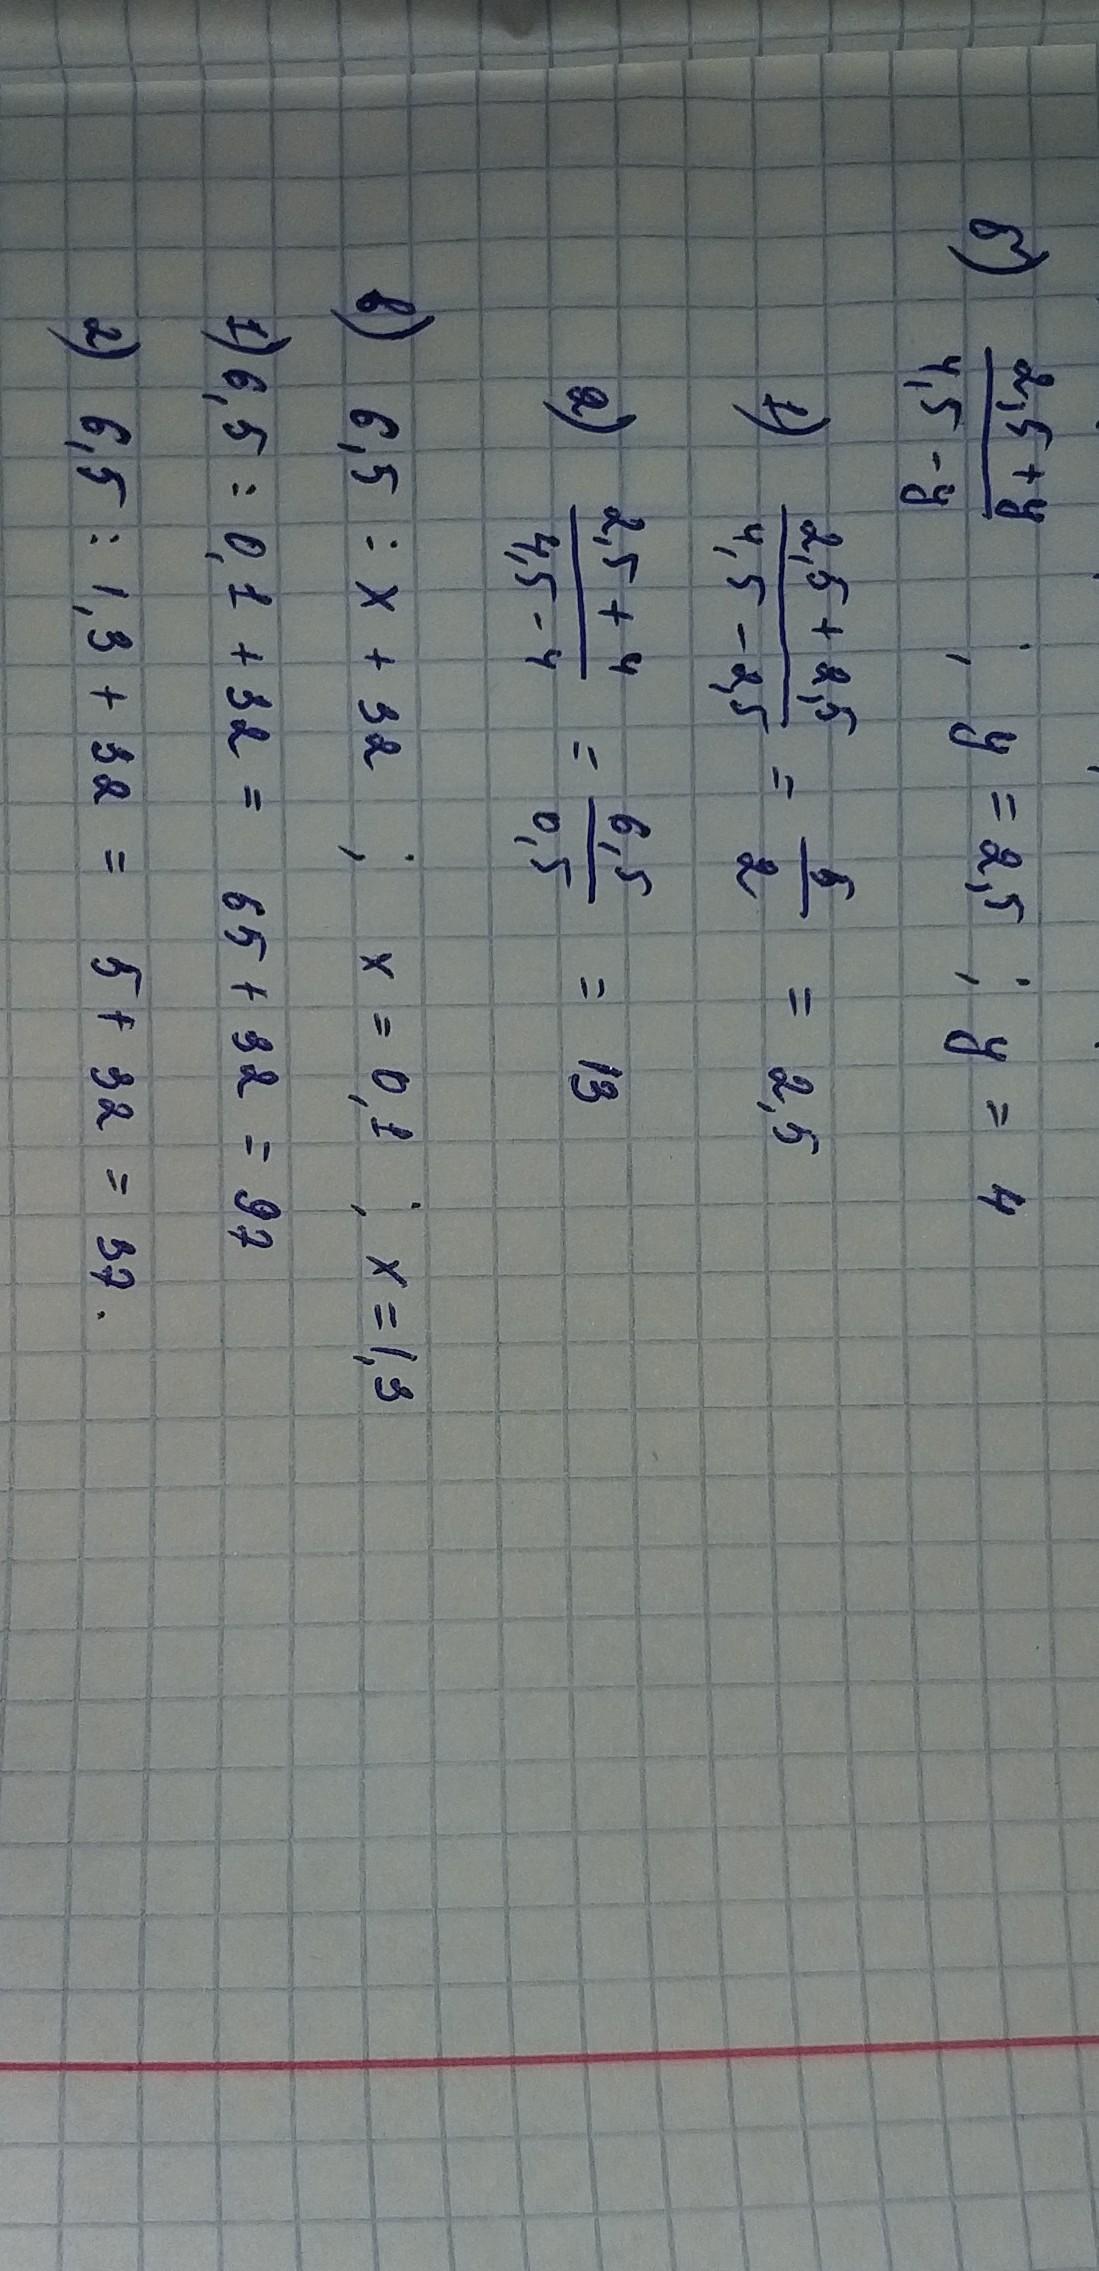 б) (2,5 + y)/(4,5 - y) ; y = 2,5 ; y = 4
1) (2,5 + 2,5)/(4,5 - 2,5) = 5/2 = 2,5
2) (2,5 + 4)/(4,5 - 4) = 6,5/0,5 = 13
в) 6,5 : x + 32 ; x = 0,1 ; x = 1,3
1) 6,5 : 0,1 + 32 = 65 + 32 = 97
2) 6,5 : 1,3 + 32 = 5 + 32 = 37.